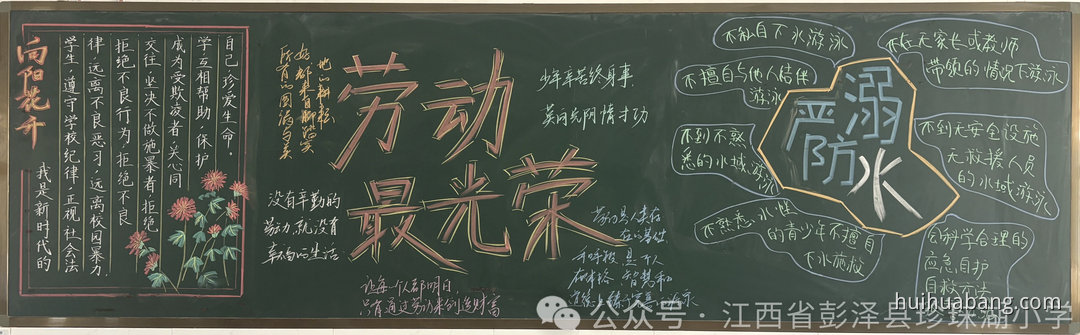 向阳花开
我是新时代的
学生，遵守学校纪律，正视社会法
律，远离不良恶习，远离校园暴力，
拒绝不良行为，拒绝不良
交往，坚决不做施暴者，拒绝
成为受欺凌者，关心同
学互相帮助，保护
自己，珍爱生命。
劳动
最光荣
少年辛苦终身事
莫向光阴惰寸功
没有辛勤的
劳动，就没有
幸福的生活
让每个人都明白，
只有通过劳动来创造财富
严防
溺水
不私自下水游泳
不擅自与他人结伴
游泳
不到不熟
悉的水域游泳
不熟悉水性
的青少年不擅自
下水施救
不在无家长或教师
带领的情况下游泳
不到无安全设施
无救援人员
的水域游泳
科学合理的
应急自护
自救方法
huihuabang.com
公众号·江西省彭泽县珍珠湖小学